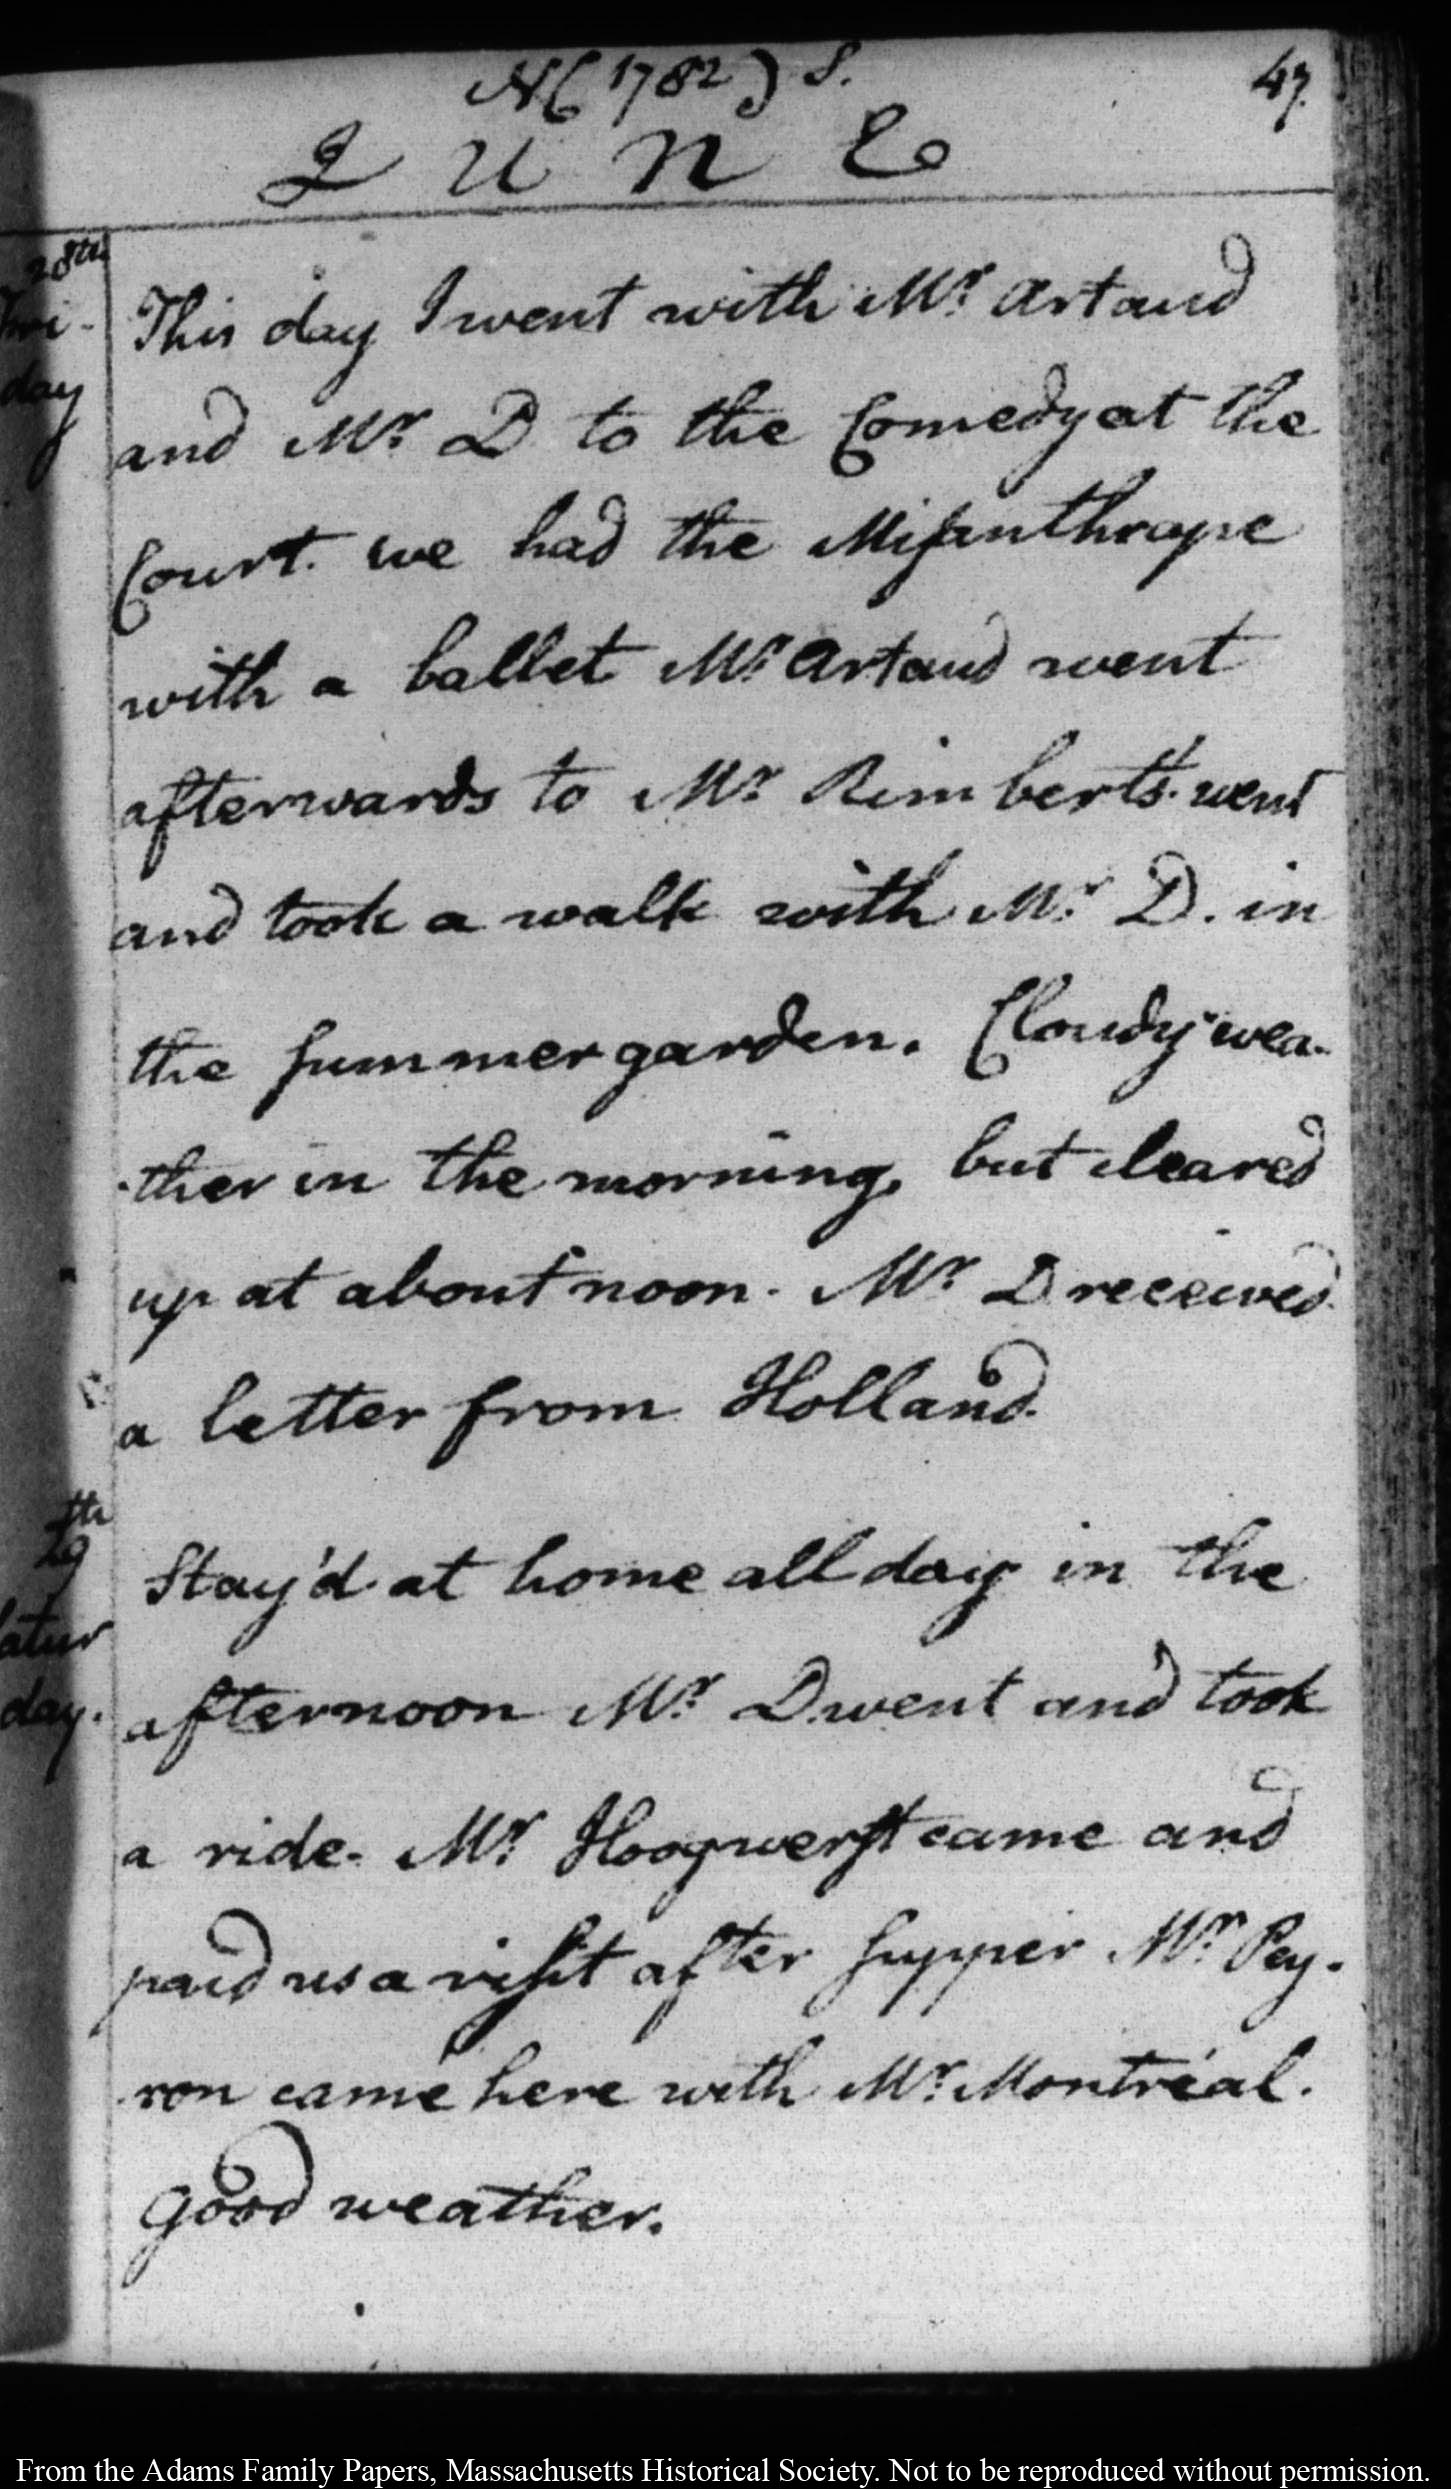 N(1782)S. 47.
JUNE
28th Fri-
day
This day I went with Mr. Artaud
and Mr. D to the Comedy at the
Court. we had the Misanthrope
with a ballet Mr. Artaud went
afterwards to Mr. Rimbert's. went
and took a walk with Mr. D. in
the summer garden. Cloudy wea-
ther in the morning, but cleared
up at about noon. Mr. D received
a letter from Holland.
29th
Satur
day.
Stay'd at home all day in the
afternoon Mr. D. went and took
a ride. Mr. Hoogwerft came and
paid us a visit after supper Mr. Pey-
ron came here with Mr. Montréal.
good weather.
From the Adams Family Papers, Massachusetts Historical Society. Not to be reproduced without permission.